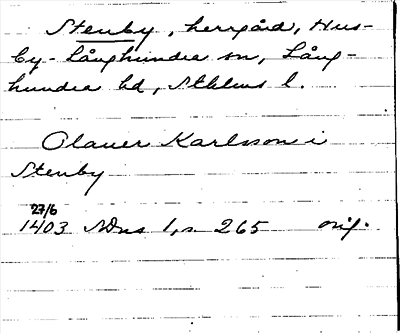 Stenby, herrgård, Hus-
by-Långhundra sn, Lång-
hundra hd, Sthlms l.
Olauer Karlsson i
Stenby
27/6
1403 SDns 1, s. 265 orig.